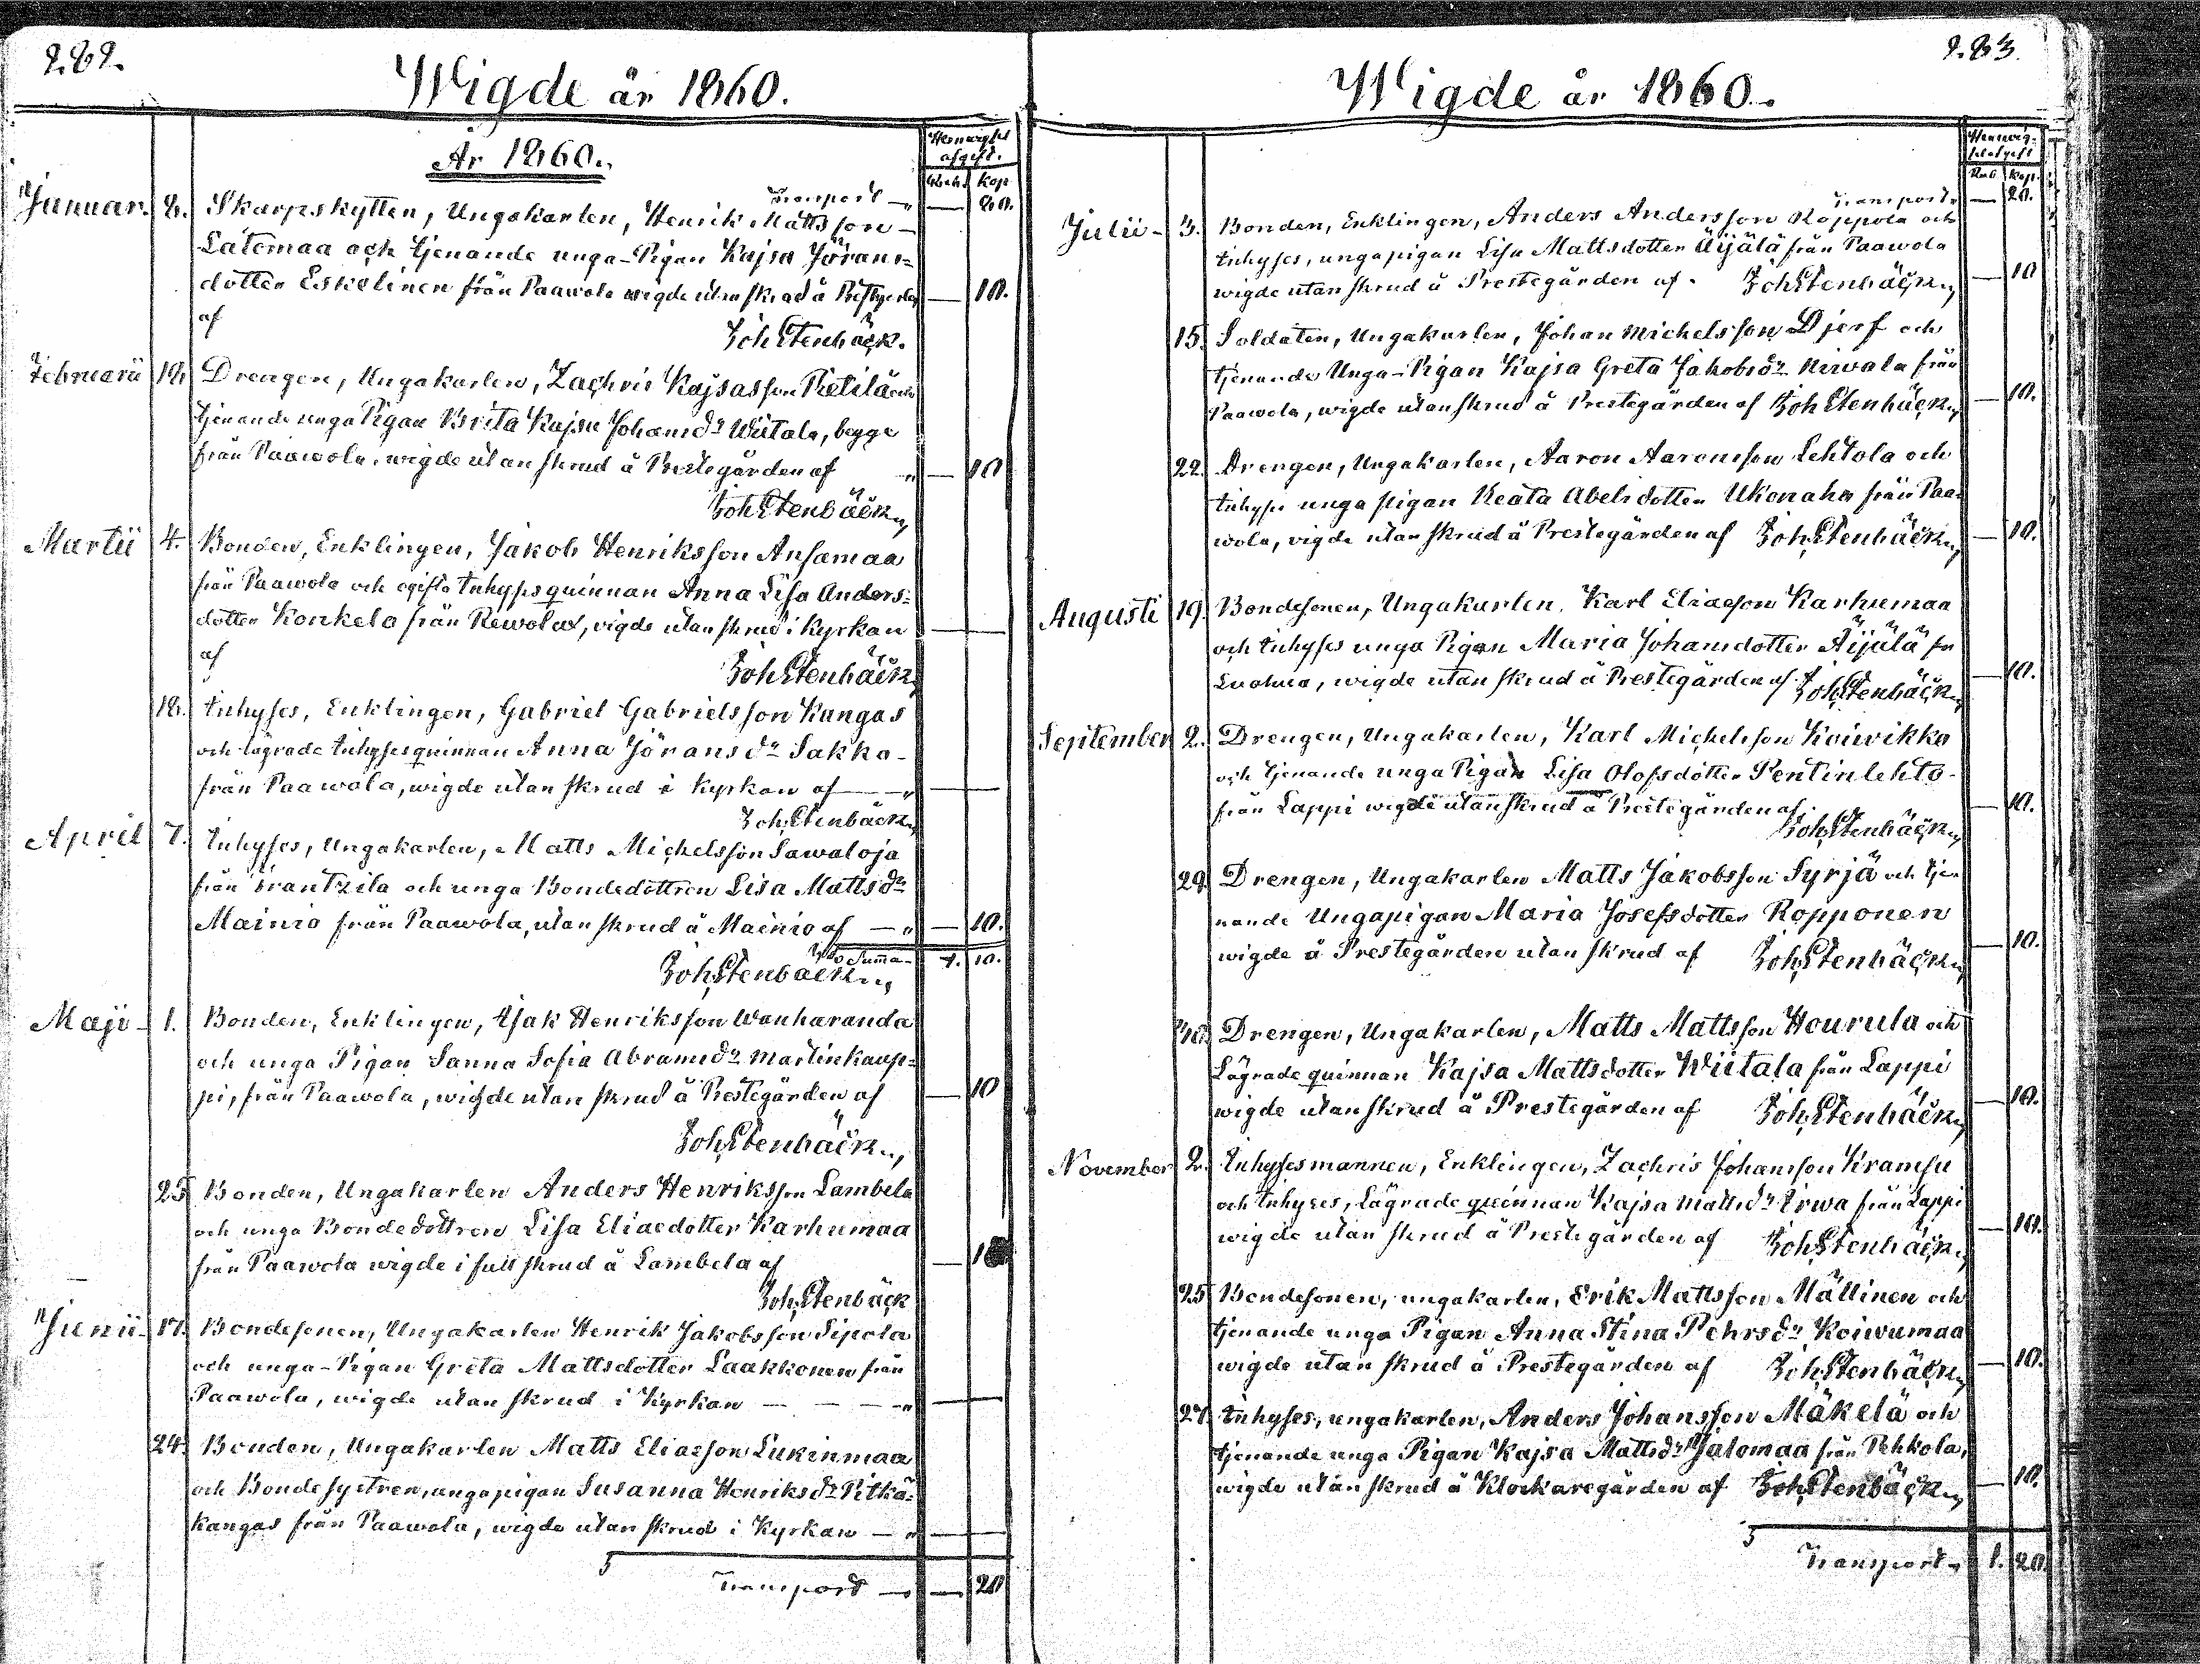 282.
Wigde år 1860.
År 1860.
Hemwigsel
afgift.
Rub. Kop.
Transport — 80.
Januar. 8. Skarpskytten, Ungakarlen, Henrik Mattsson
Latomaa och tjenande unga-Pigan Kajsa Jörans-
dotter Eskelinen från Paawola wigde utan skrud å Prestgården — 10.
af
Joh Stenbäck.
Februarii 12. Drengen, Ungakarlen, Zachris Kajsasson Pietilä och
tjenande unga Pigan Brita Kajsa Johansdr Wiitala, begge
från Paawola, wigde utan skrud å Prestegården af — 10
Joh Stenbäck
Martii 4. Bonden, Enklingen, Jakob Henriksson Ansamaa
från Paawola och ogifta Inhyses quinnan Anna Lisa Anders-
dotter Konkela från Rewolax, vigde utan skrud i Kyrkan —
af
Joh Stenbäck
18. Inhyses, Enklingen, Gabriel Gabrielsson Kangas
och lägrade Inhyses quinnan Anna Jöransdr Sakko-
från Paawola, wigde utan skrud i Kyrkan af —
Joh Stenbäck
April 7. Inhyses, Ungakarlen, Matts Michelsson Sawaloja
från Frantzila och unga Bondedottren Lisa Mattsdr
Mainio från Paawola, utan skrud å Mainio af — 10.
Summa 1. 10.
Joh Stenbäck
Maji 1. Bonden, Enklingen, Isak Henriksson Wanharanda
och unga Pigan Sanna Sofia Abramsdr Martinkaup-
pi, från Paawola, wigde utan skrud å Prestegården af — 10
Joh Stenbäck
25. Bonden, Ungakarlen Anders Henriksson Lambela
och unga Bondedottren Lisa Eliaedotter Karhumaa
från Paawola wigde i full skrud å Lambela af — 10
Joh Stenbäck
Junii 17. Bondesonen, Ungakarlen Henrik Jakobsson Sipola
och unga-Pigan Greta Mattsdotter Laakkonen från
Paawola, wigde utan skrud i Kyrkan —
24. Bonden, Ungakarlen Matts Eliasson Lukinmaa
och Bondesystren, ungapigan Susanna Henriksdr Pitkä-
kangas från Paawola, wigde utan skrud i Kyrkan —
Transport — 20
283.
Wigde år 1860.
Hemwig-
selafgift
Rub. Kop.
Transport — 20.
Julii 3. Bonden, Enklingen, Anders Andersson Koppola och
Inhyses, ungapigan Lisa Mattsdotter Äijälä från Paawola
wigde utan skrud å Prestegården af Joh Stenbäck — 10
15. Soldaten, Ungakarlen, Johan Michelsson Djerf och
tjenande Unga-Pigan Kajsa Greta Jakobsdr Nirwala från
Paawola, wigde utan skrud å Prestegården af Joh Stenbäck — 10.
22. Drengen, Ungakarlen, Aaron Aaronsson Lehtola och
Inhyses unga pigan Beata Abelsdotter Ukonaho från Paa-
wola, vigde utan skrud å Prestegården af Joh Stenbäck — 10.
Augusti 19. Bondesonen, Ungakarlen, Karl Eliasson Karhumaa
och Inhyses unga Pigan Maria Johansdotter Äijälä fr
Luohua, wigde utan skrud å Prestegården af Joh Stenbäck — 10.
September 2. Drengen, Ungakarlen, Karl Michelsson Koiwikko
och tjenande unga Pigan Lisa Olofsdotter Pentinlehto
från Lappi wigde utan skrud å Prestegården af — 10.
Joh Stenbäck
29. Drengen, Ungakarlen Matts Jakobsson Syrjä och tje-
nande Ungapigan Maria Josefsdotter Ropponen
wigde å Prestegården utan skrud af Joh Stenbäck — 10.
Drengen, Ungakarlen, Matts Mattsson Hourula och
Lägrade quinnan Kajsa Mattsdotter Wiitala från Lappi
wigde utan skrud å Prestegården af Joh Stenbäck — 10.
November 2. Inhysesmannen, Enklingen, Zachris Johansson Kramsu
och Inhyses, Lägrade quinnan Kajsa Mattsdr Erwa från Lappi
wigde utan skrud å Prestegården af Joh Stenbäck — 10.
25 Bondesonen, ungakarlen, Erik Mattsson Mällinen och
tjenande unga Pigan Anna Stina Pehrsdr Koiwumaa
wigde utan skrud å Prestegården af Joh Stenbäck — 10.
27. Inhyses, ungakarlen, Anders Johansson Mäkelä och
tjenande unga Pigan Kajsa Mattsdr Jalomaa från Pehkola,
wigde utan skrud å Klockaregården af Joh Stenbäck — 10.
Transport 1. 20.